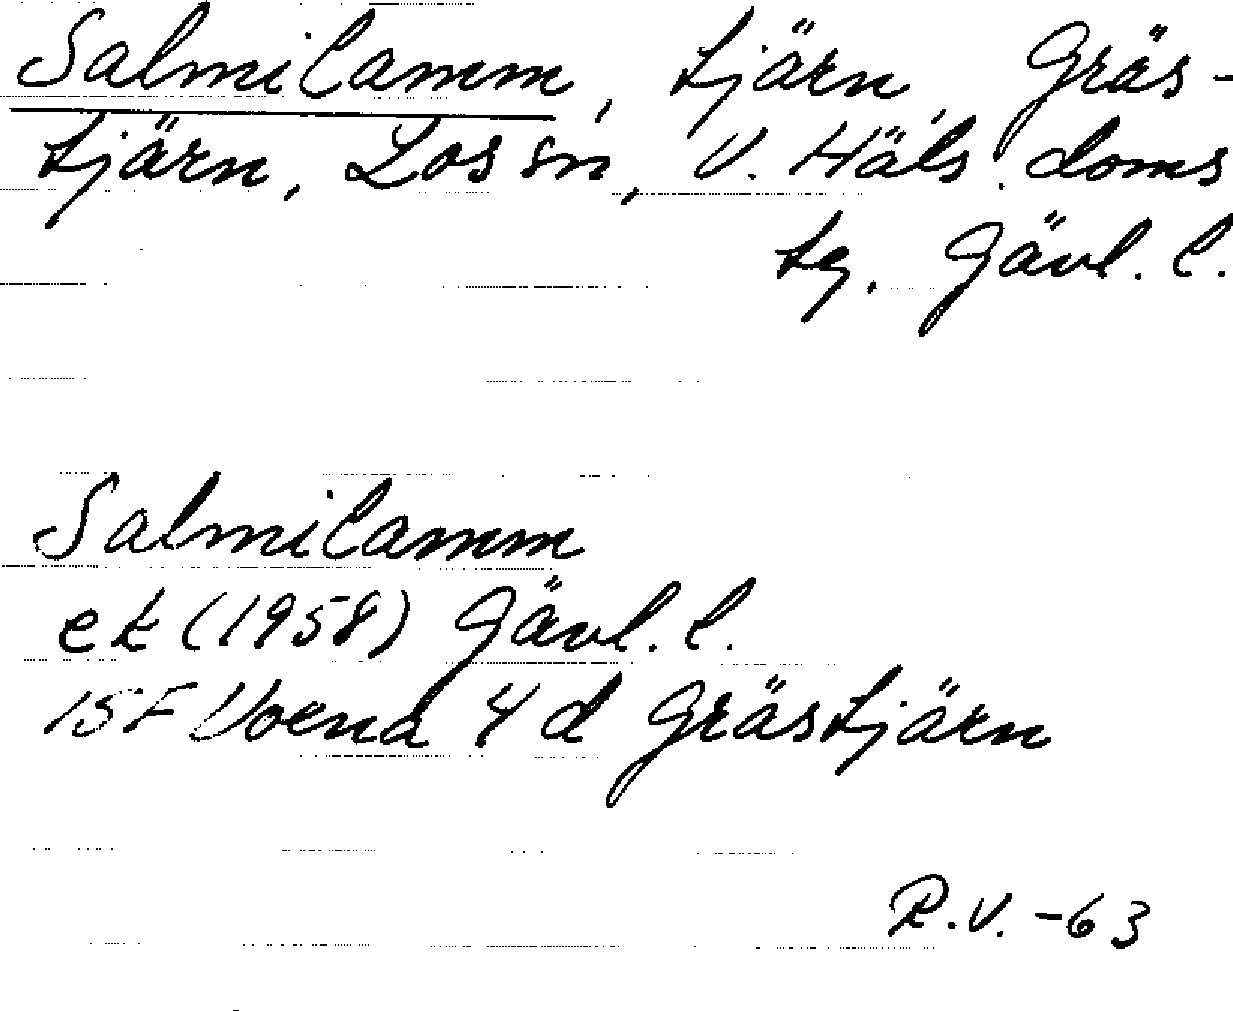 Salmilamm, tjärn, Gräs-
tjärn, Los sn, V. Häls. doms
tg. Gävl. l.
Salmilamm
ek (1958) Gävl. l.
15F Voxna 4 d Grästjärn
R.V. -63